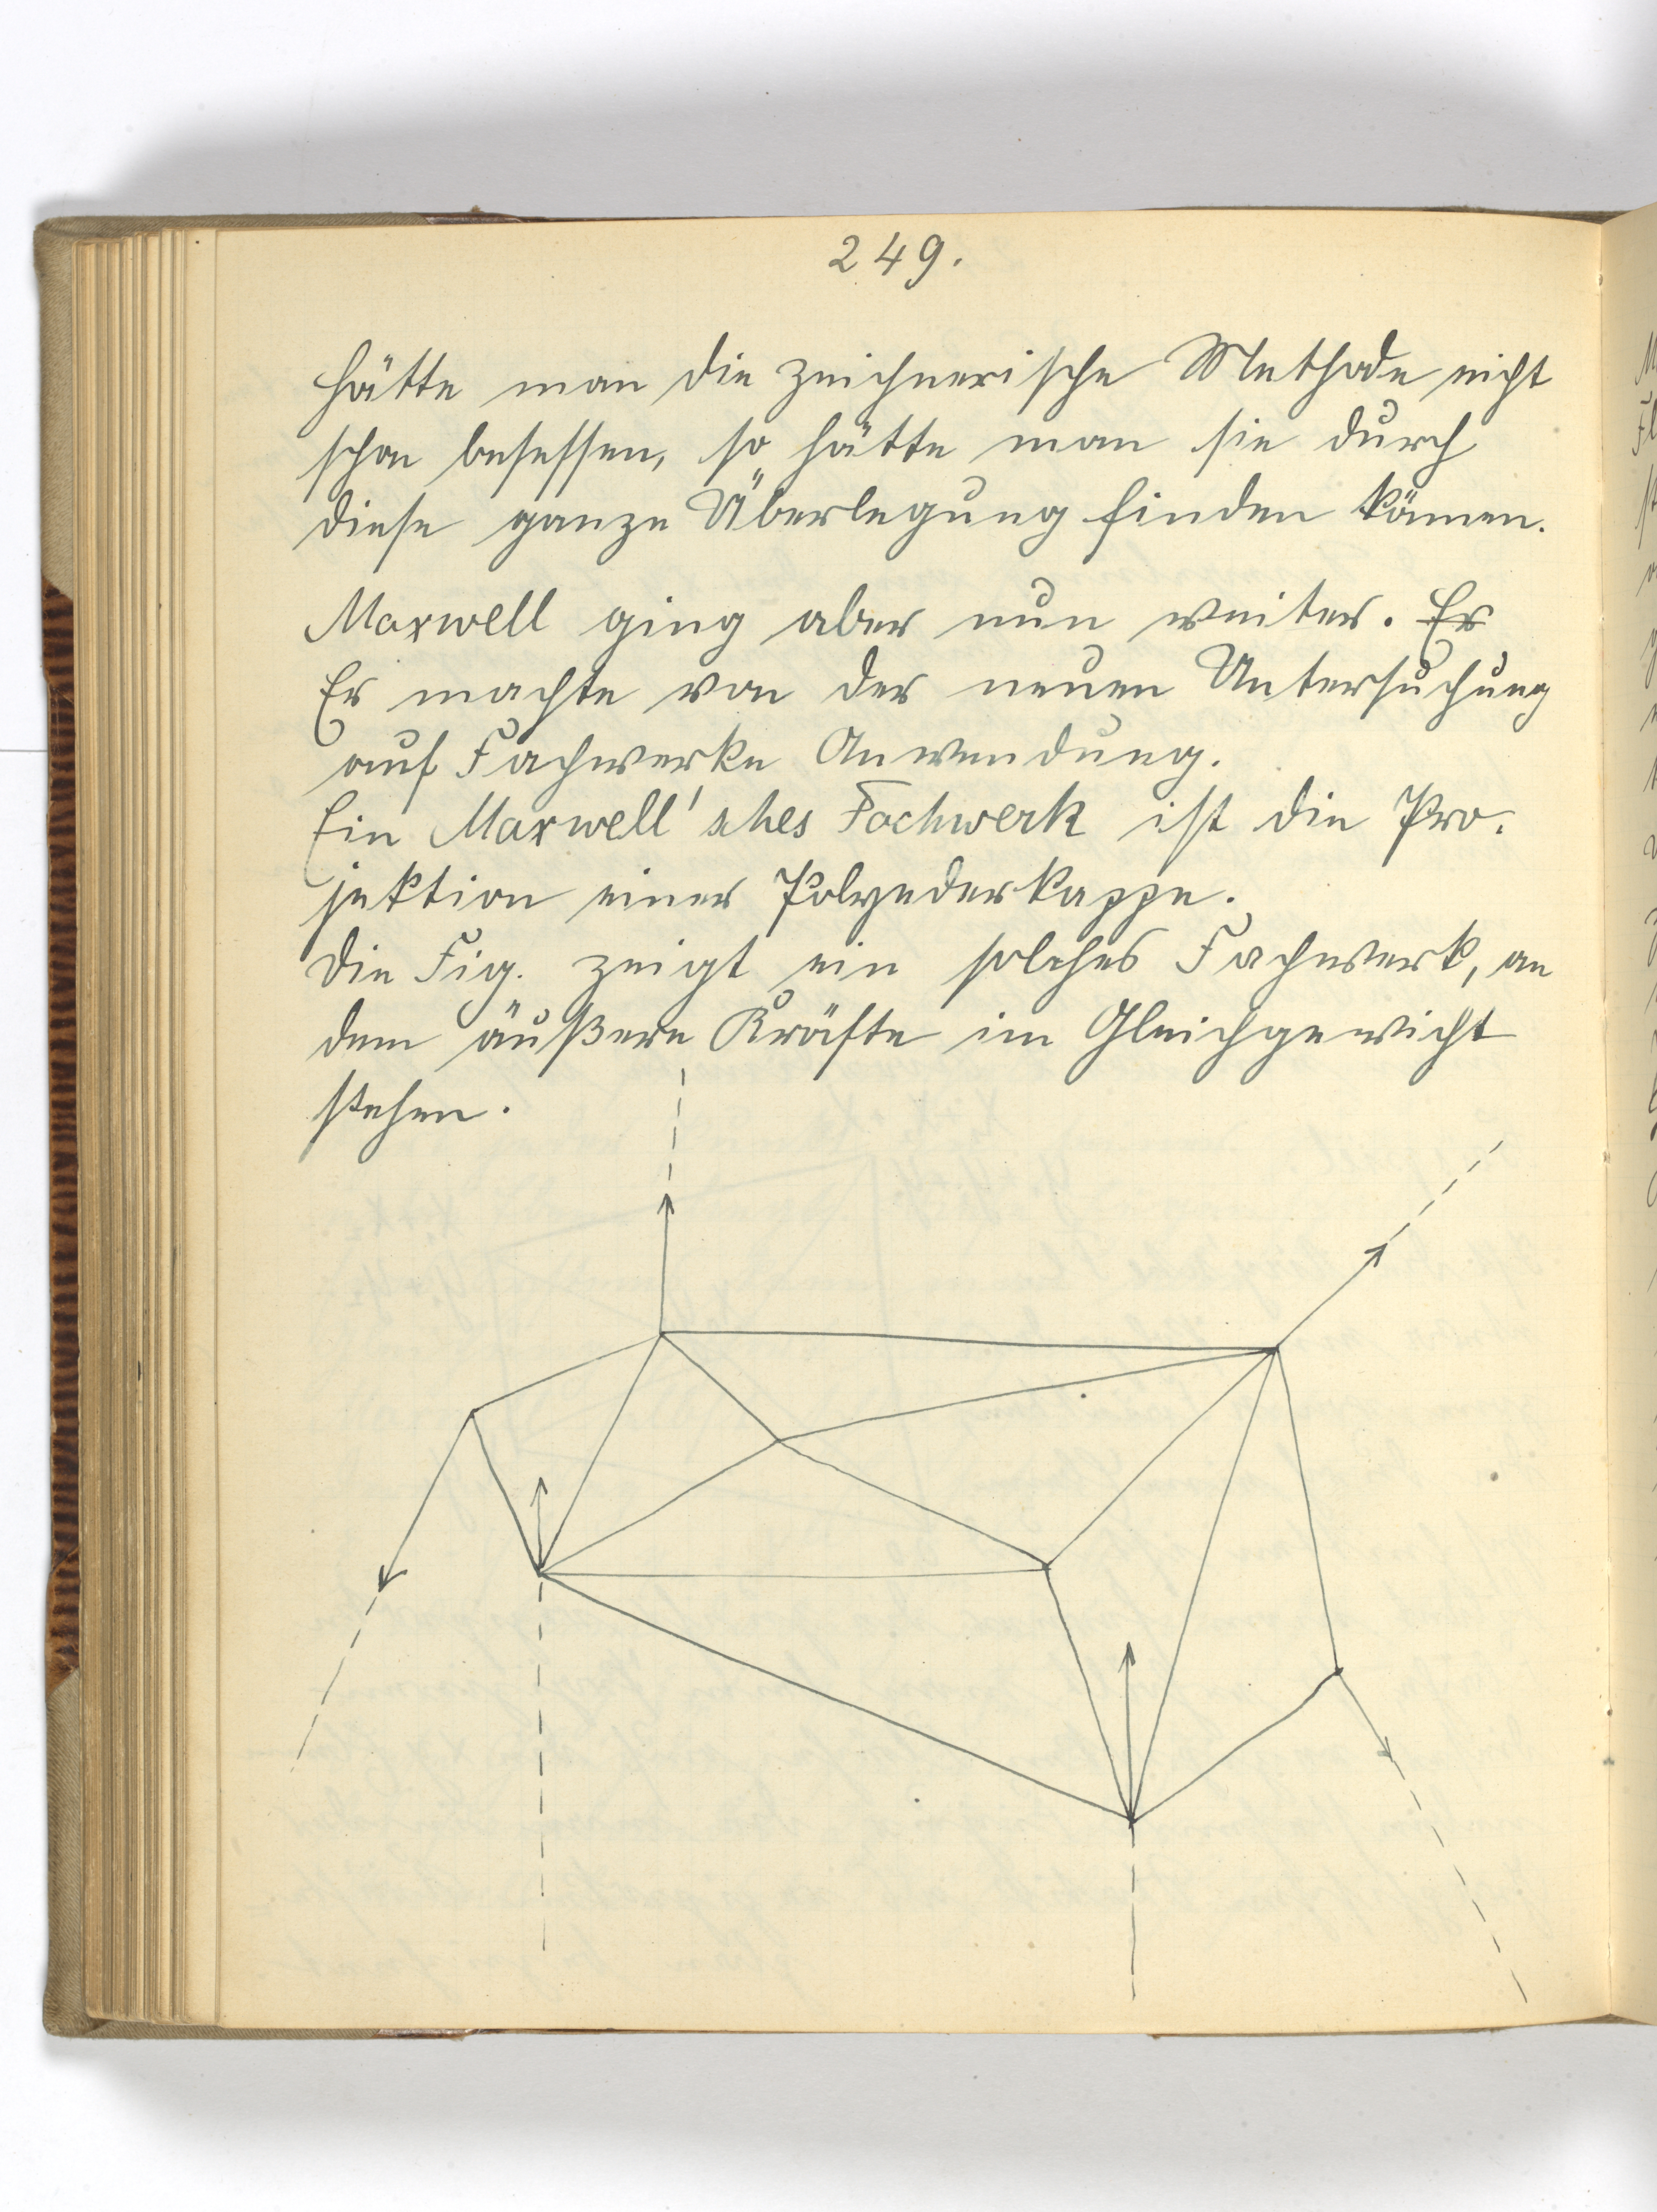 249.
hätte man die zeichnerische Methode nicht
schon besessen, so hätte man sie durch
diese ganze Überlegung finden können.
Maxwell ging aber nun weiter. Er
Er machte von der neuen Untersuchung
auf Fachwerke Anwendung.
Ein Maxwell'sches Fachwerk ist die Pro-
jektion einer Polyederkappe.
Die Fig. zeigt ein solches Fachwerk, an
dem äußere Kräfte im Gleichgewicht
stehen.